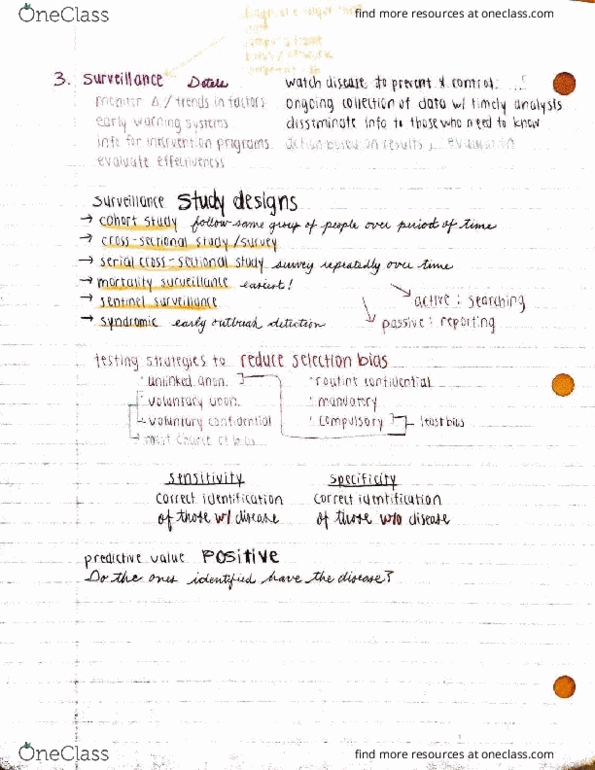 OneClass
find more resources at oneclass.com
3. Surveillance
watch disease to prevent & control
monitor Δ / trends in factors
ongoing collection of data w/ timely analysis
early warning systems
disseminate info to those who need to know
info for intervention programs
action based on results evaluation
evaluate effectiveness
surveillance Study designs
→ cohort study follow same group of people over period of time
→ cross-sectional study / survey
→ serial cross-sectional study survey repeatedly over time
→ mortality surveillance easiest!
→ sentinel surveillance
active : searching
→ syndromic early outbreak detection
passive : reporting
testing strategies to reduce selection bias
unlinked anon.
routine confidential
voluntary anon.
mandatory
voluntary confidential
compulsory
least bias
→ most chance of bias
Sensitivity
Specificity
correct identification
correct identification
of those w/ disease
of those w/o disease
predictive value POSITIVE
Do the ones identified have the disease?
OneClass
find more resources at oneclass.com